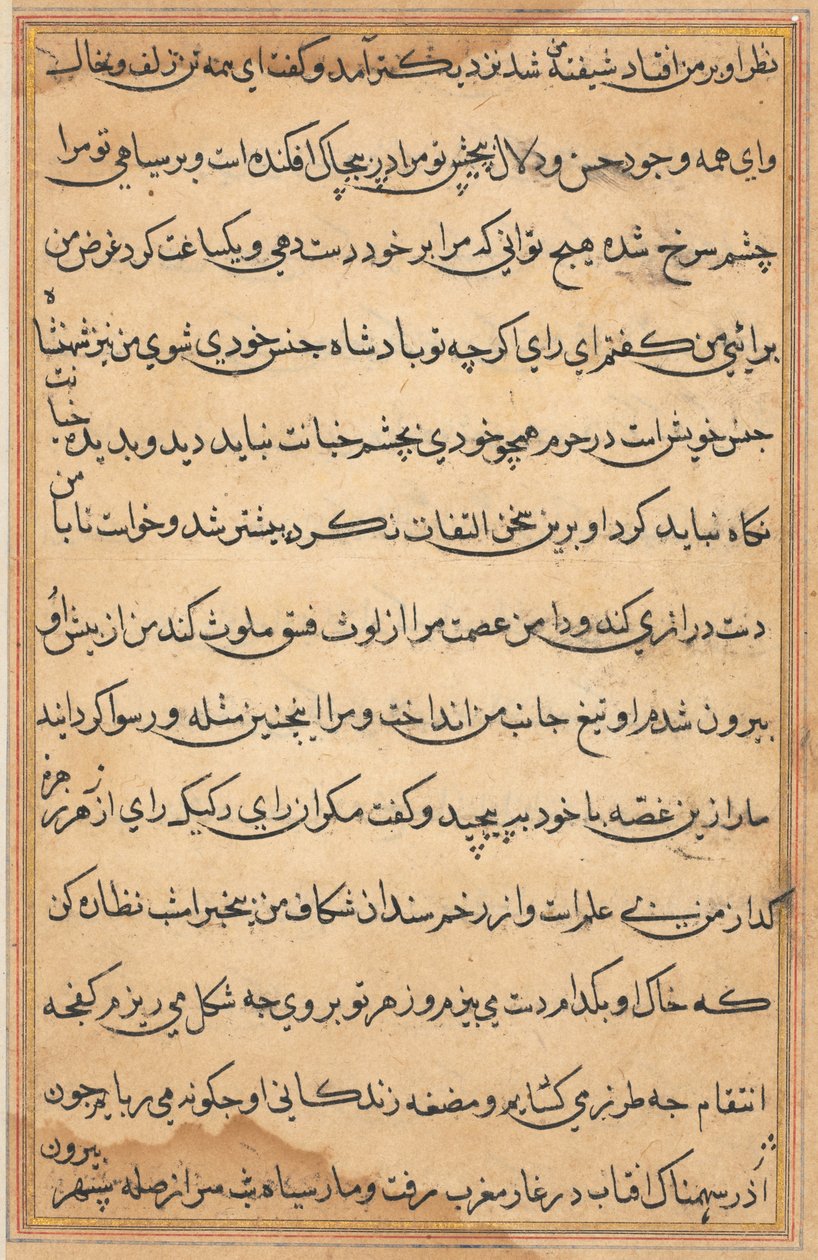 نظر او بر من افتاد شیفتهٔ من شد نزدیکتر آمد و کفت ای همه تن زلف و خال
وای همه وجود حسن و دلال پیچش تو مرا در پیچاک افکنده است و بر سیاهی تو مرا
چشم سرخ شده هیچ توانی که مرا بر خود دست دهی و یکساعت کرد غرض من
برائی من کفتم ای رای اکرچه تو بادشاه جنس خودی شوی من نیز شهنشاه
جنس خویش است در حرم همچو خودی بچشم خیانت نباید دید و بدیده خیانت
نکاه نباید کرد او برین سخن التفات نکرد پیشتر شد و خواست تا با من
دست درازی کند و دامن عصمت مرا از لوث فسق ملوث کند من از پیش او
بیرون شدم او تیغ جانب من انداخت و مرا اینچنین مثله و رسوا کردانید
مار ازین غصّه با خود بپیچید و کفت مکر آن رای رکیک رای از زهر زهره
کداز من بی علم است و از زخم سندان شکاف من بیخبر امشب نظاره کن
که خاک او بکدام دست می بیزم و زهر تو بر وی چه شکل می ریزم کفچه
انتقام چه طرز می کشایم و مضغه زندکانی او چکونه می ربایم چون
آذر سهمناک افتاب در غار مغرب رفت و مار سیاه شب سر از صله سپهر بیرون